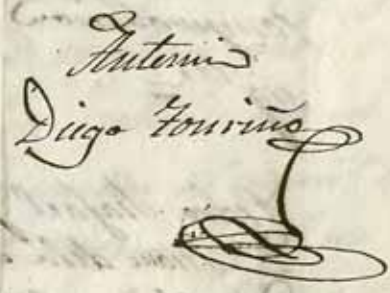 Antonio
Diego Touriño